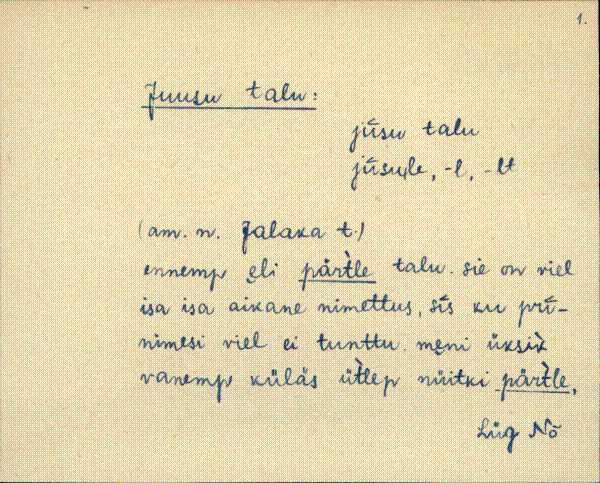 1.
Juusu talu:
jūsu talu
jūsule, -l, -lt
(am. n. Jalaka t.)
ennemp eli pärt̀le talu. sie on viel
isa isa aikane nimettus, sīs ku prī-
nimesi viel ei tunttu. meni üksik̀
vanemp küläs üt̀lep nüitki pärt̀le,
Lüg Nõ